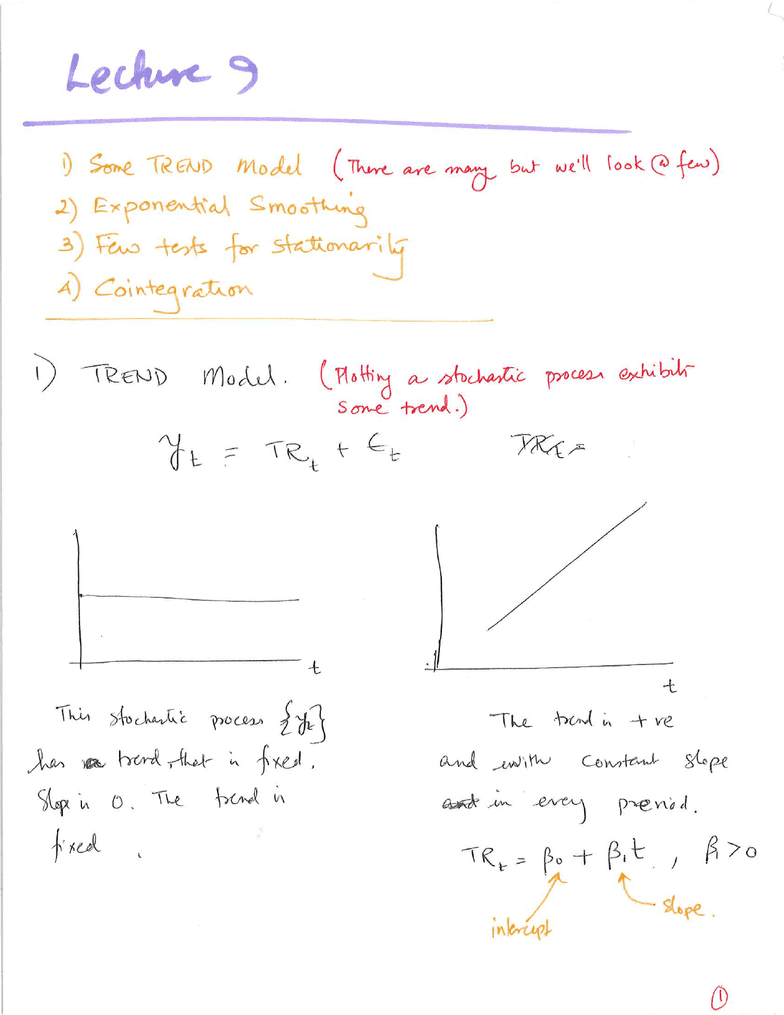 Lecture 9
1) Some TREND Model (There are many but we'll look @ few)
2) Exponential Smoothing
3) Few tests for stationarity
4) Cointegration
1) TREND Model. (Plotting a stochastic process exhibits
some trend.)
y_t = TR_t + ε_t
TR_t =
t
t
This stochastic process {y_t}
has trend, that is fixed.
Slope is 0. The trend is
fixed.
The trend is +ve
and with constant slope
in every period.
TR_t = β₀ + β₁t, β₁ > 0
intercept
slope.
1